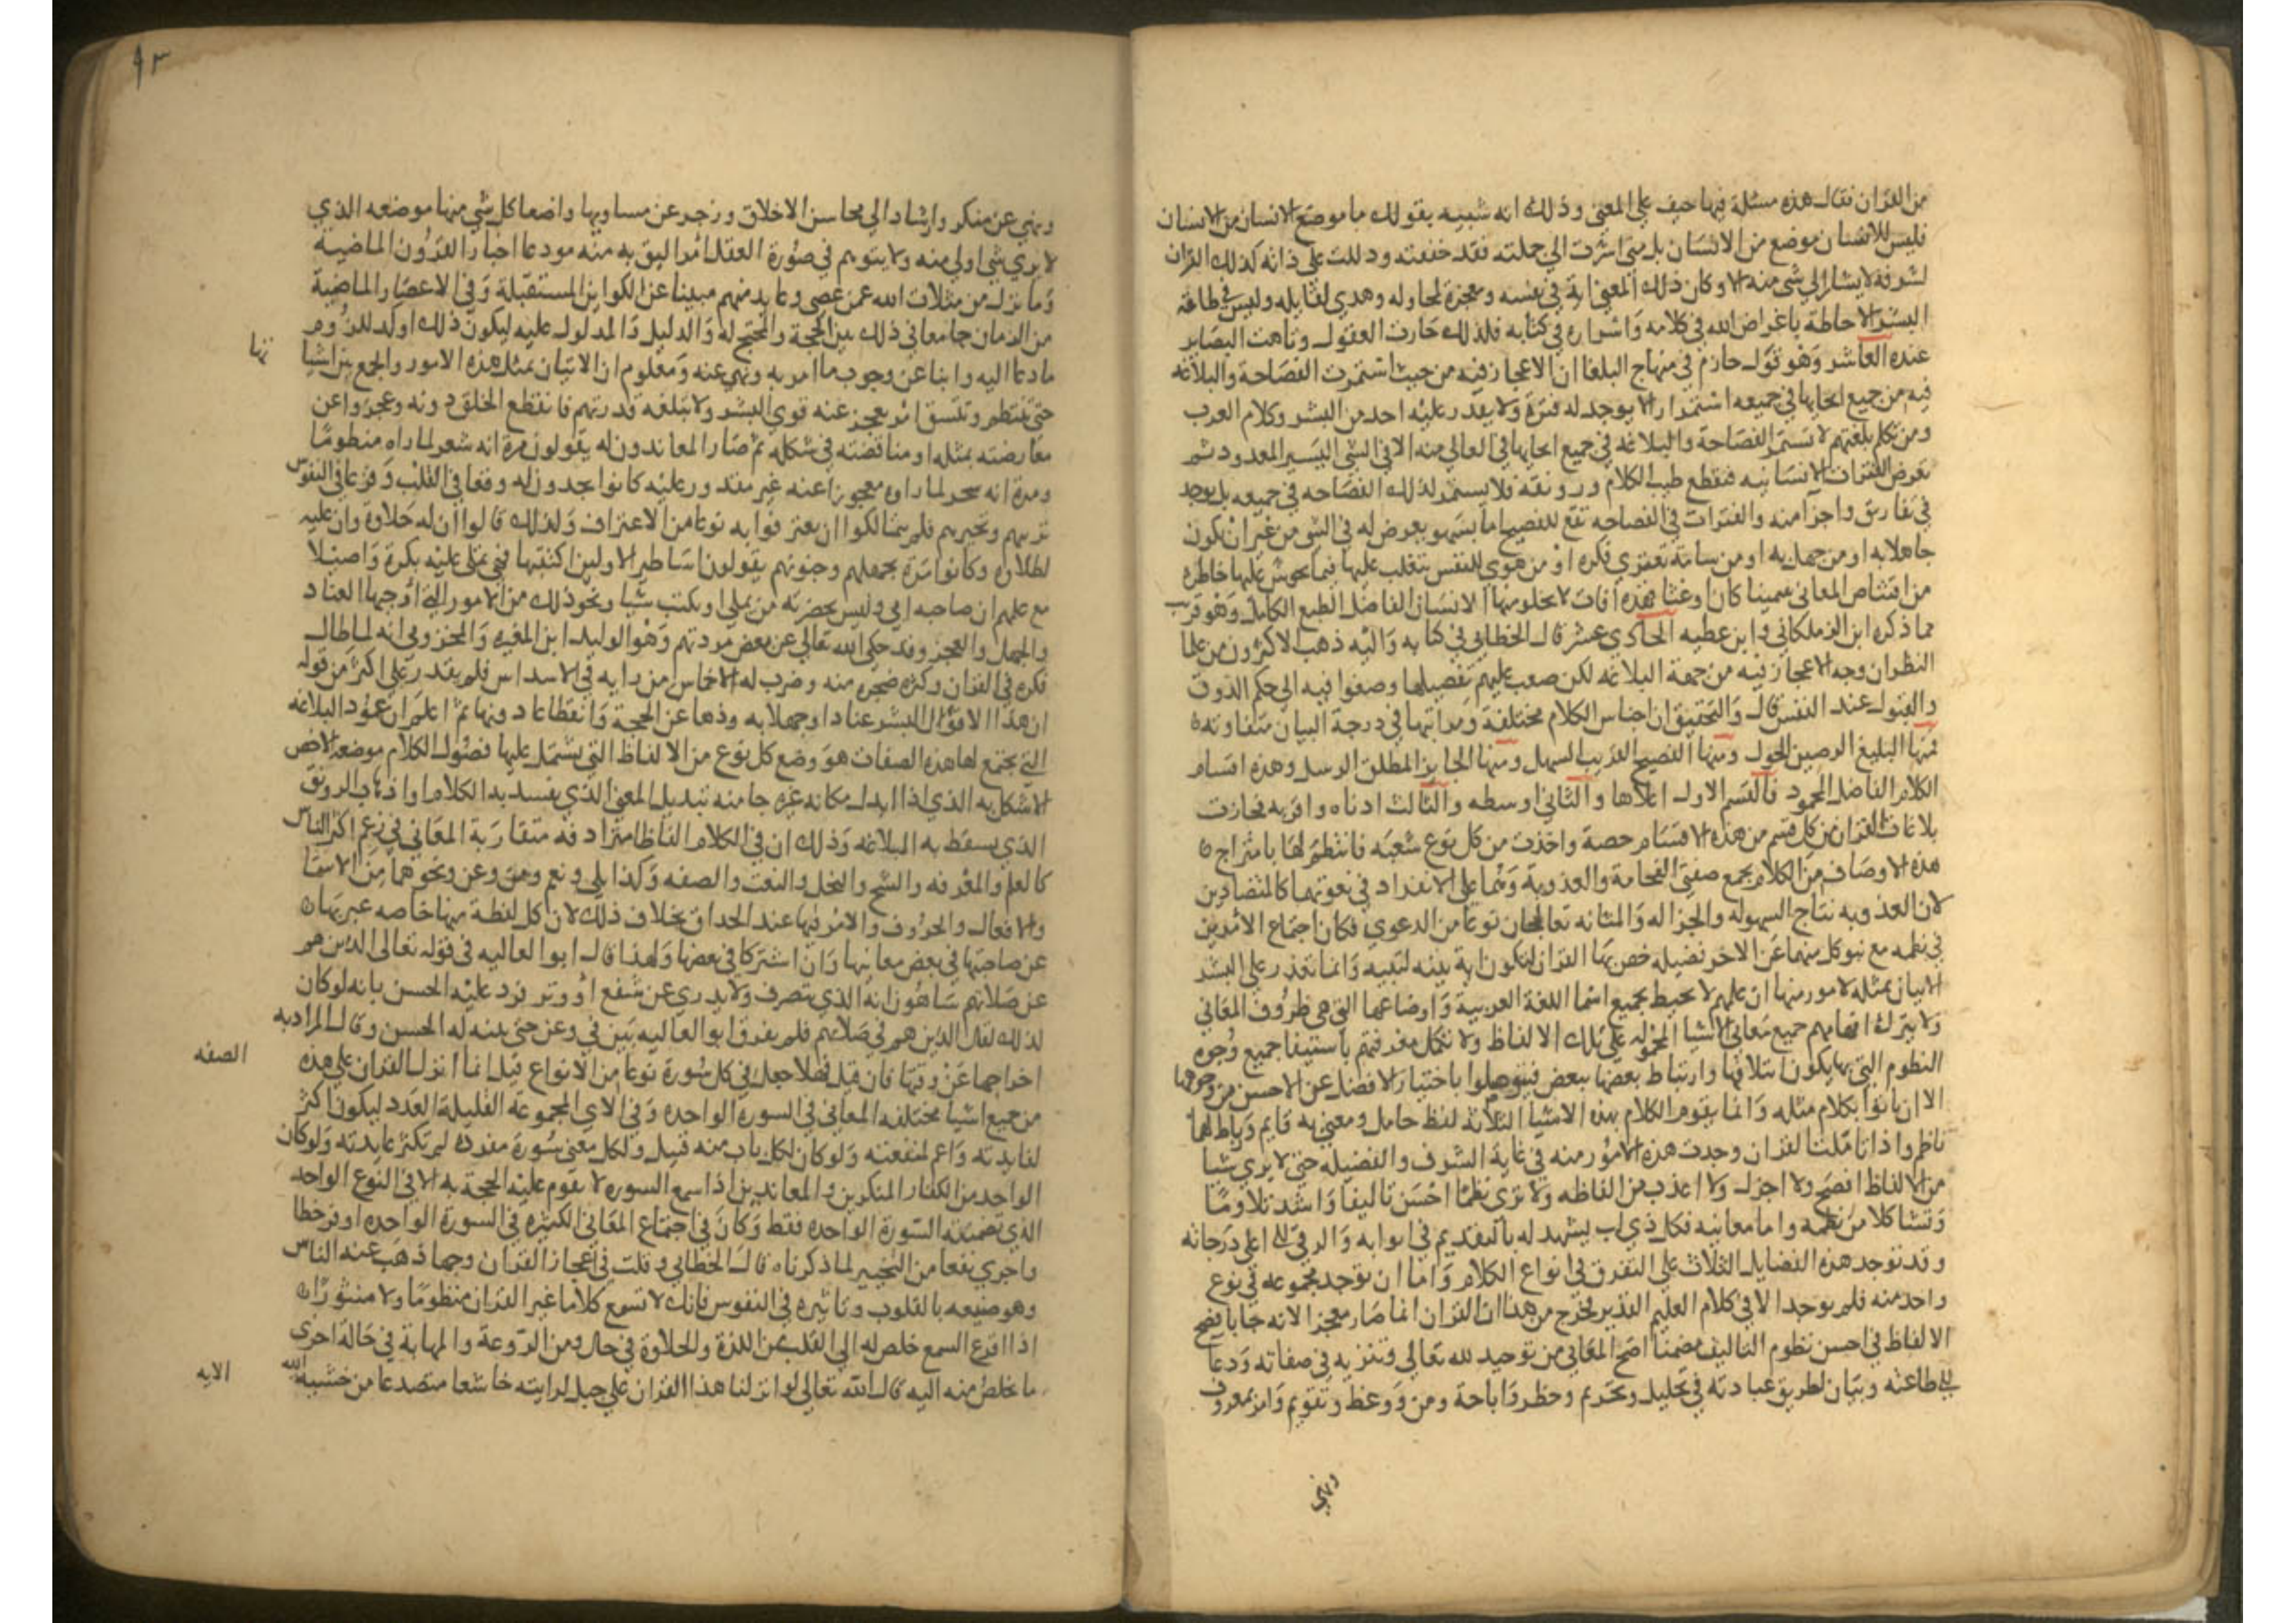 من القران فقال هذه مسئلة فيها حيف على المعنى وذلك انه شبيه بقولك ما موضع الانسان من الانسان
فليس للانسان موضع من الانسان بل متى اشرت الى جملته فقد حققته ودللت على ذاته كذلك القران
لشرفه لا يشار الى شي منه الا وكان ذلك المعنى اية في نفسه ومعجزة لمحاوله وهدى لقايله وليس في طاقة
البشر الاحاطة باغراض الله في كلامه واسراره في كتابه فلذلك حارت العقول وتاهت البصاير
عنده العاشر وهو قول حازم في منهاج البلغا ان الاعجاز فيه من حيث استمرت الفصاحة والبلاغة
فيه من جميع انحايها في جميعه استمرارا لا يوجد له فترة ولا يقدر عليه احد من البشر وكلام العرب
ومن تكلم بلغتهم لا تستمر الفصاحة والبلاغة في جميع انحايها في العالي منه الا في الشي اليسير المعدود ثم
تعرض الفترات الانسانية فتقطع طيب الكلام ورونقه فلا يستمر لذلك الفصاحه في جميعه بل توجد
في تفاريق واجزا منه والفترات في الفصاحه تقع للفصيح اما بسهو يعرض له في الشي من غير ان يكون
جاهلا به او من جهل به او من سامة تعتري فكره او من هوى للنفس يتغلب عليها فيما يحوش عليها خاطره
من اقتناص المعاني سمينا كان او غثا فهذه افات لا يخلو منها الانسان الفاضل الطبع الكامل وهو قريب
مما ذكره ابن الزملكاني وابن عطيه الحادي عشر قال الخطابي في كتابه واليه ذهب الاكثرون من علما
النظر ان وجه الاعجاز فيه من جهة البلاغه لكن صعب عليهم تفصيلها وصغوا فيه الى حكم الذوق
والقبول عند النفس قال والتحقيق ان اجناس الكلام مختلفة ومراتبها في درجة البيان متفاوته
فمنها البليغ الرصين الجزل ومنها الفصيح القريب السهل ومنها الجايز المطلق الرسل وهذه اقسام
الكلام الفاضل المحمود فالقسم الاول اعلاها والثاني اوسطه والثالث ادناه واقربه فحازت
بلاغات القران من كل قسم من هذه الاقسام حصة واخذت من كل نوع شعبه فانتظم لها بامتزاج
هذه الاوصاف من الكلام يجمع صفتي الفخامة والعذوبة وهما على الانفراد في نعوتهما كالمتضادين
لان العذوبه نتاج السهوله والجزاله والمتانه تعالجان نوعا من الدعوى فكان اجتماع الامرين
في نظمه مع نبو كل منهما عن الاخر فضيله خص بها القران ليكون اية بينه لنبيه وانما تعذر على البشر
الاتيان بمثله لامور منها ان علمهم لا يحيط بجميع اسما اللغة العربية واوضاعها التي هي ظروف المعاني
ولا يترك افهامهم جميع معاني الاشيا المحموله على تلك الالفاظ ولا تكمل معرفتهم باستيفا جميع وجوه
النظوم التي بها يكون ايتلافها وارتباط بعضها ببعض فيتوصلوا باختيار الافضل عن الاحسن من وجوهها
الا ان ياتوا بكلام مثله وانما يقوم الكلام بهذه الاشيا الثلاثة لفظ حامل ومعنى به قايم ورباط لهما
ناظم واذا تاملت القران وجدت هذه الامور منه في غاية الشرف والفضيله حتى لا يرى شيا
من الالفاظ افصح ولا اجزل ولا اعذب من الفاظه ولا ترى نظما احسن تاليفا واشد تلاوما
وتشاكلا من نظمه واما معانيه فكل ذي لب يشهد له بالتقديم في ابوابه والرقي الى اعلى درجاته
وقد توجد هذه الفضايل الثلاث على التفرق في انواع الكلام واما ان توجد مجموعه في نوع
واحد منه فلم يوجد الا في كلام العليم القدير فخرج من هذا ان القران انما صار معجزا لانه جا بافصح
الالفاظ في احسن نظوم التاليف مضمنا اصح المعاني من توحيد لله تعالى وتنزيه في صفاته ودعا
الى طاعته وبيان لطريق عبادته في تحليل وتحريم وحظر واباحة ومن وعظ وتقويم وامر بمعروف
ونهي
٩٣
ونهي عن منكر وارشاد الى محاسن الاخلاق وزجر عن مساويها واضعا كل شي منها موضعه الذي
لا يرى شي اولى منه ولا يتوهم في صورة العقل امر اليق به منه مودعا اخبار القرون الماضية
وما نزل من مثلات الله عمن عصى وعاند منهم مبينا عن الكواين المستقبلة وفي الاعصار الماضية
من الزمان جامعا في ذلك بين الحجة والمحتج له والدليل والمدلول عليه ليكون ذلك اوكد للزوم
ما دعا اليه وانبا عن وجوب ما امر به ونهى عنه ومعلوم ان الاتيان بمثل هذه الامور والجمع بين اشيا
تها
حتى تنتظم وتتسق امر يعجز عنه قوى البشر ولا تبلغه قدرتهم فانقطع الخلق دونه وعجزوا عن
معارضته بمثله او مناقضته في شكله ثم صار المعاندون له يقولون مرة انه شعر لما راوه منظوما
ومرة انه سحر لما راوه معجوزا عنه غير مقدور عليه كانوا يجدون له وقعا في القلب وقرعا في النفوس
يريبهم ويحيرهم فلم يتمالكوا ان يعترفوا به نوعا من الاعتراف ولذلك قالوا ان له حلاوة وان عليه
لطلاوه وكانوا مرة بجهلهم وجنونهم يقولون اساطير الاولين اكتتبها فهي تملى عليه بكرة واصيلا
مع علمهم ان صاحبه امي وليس بحضرته من يملي او يكتب شيا ونحو ذلك من الامور التي اوجبها العناد
والجهل والعجز وقد حكى الله تعالى عن بعض مردتهم وهو الوليد ابن المغيره والمخزومي انه لما طال
فكره في القران وكثر ضجره منه وضرب له الاخماس من رايه في الاسداس فلم يقدر على اكثر من قوله
ان هذا الا قول البشر عنادا وجهلا به وذهبا عن الحجة وانقطاعا دونها ثم اعلم ان عمود البلاغه
التي يجتمع لها هذه الصفات هو وضع كل نوع من الالفاظ التي يشتمل عليها فصول الكلام موضعه الاخص
الاشكل به الذي اذا ابدل مكانه غيره جا منه تبديل المعنى الذي يفسد به الكلام او اذهاب الرونق
الذي يسقط به البلاغه وذلك ان في الكلام الفاظا مترادفه متقاربة المعاني في زعم اكثر الناس
كالعلم والمعرفه والشح والبخل والنعت والصفه وكذا بلى ونعم ومن وعن ونحوهما من الاسما
والافعال والحروف والامر فيها عند الحذاق بخلاف ذلك لان كل لفظة منها خاصه عبر بها
عن صاحبتها في بعض معانيها وان اشتركا في بعضها ولهذا قال ابو العاليه في قوله تعالى الذين هم
عن صلاتهم ساهون انه الذي ينصرف ولا يدري عن شفع او وتر فرد عليه الحسن بانه لو كان
لذلك لقال الذين هم في صلاتهم فلم يفرق ابو العاليه بين في وعن حتى بينه له الحسن وقال المراد به
اخراجها عن وقتها فان قيل فهلا جعل في كل سورة نوعا من الانواع قيل انما انزل القران على هذه
الصفه
من جميع اشيا مختلفه المعاني في السورة الواحده وفي الاي المجموعة القليلة العدد ليكون اكثر
لفايدته واعم لمنفعته ولو كان لكل باب منه قبيل ولكل معنى سورة مفردة لم تكثر عايدته ولو كان
الواحد من الكفار المنكرين والمعاندين اذا سمع السوره لا يقوم عليه الحجة به الا في النوع الواحد
الذي تضمنته السورة الواحده فقط وكان في اجتماع المعاني الكثيره في السورة الواحده اوفر حظا
واجرى نفعا من التخيير لما ذكرناه قال الخطابي وقلت في اعجاز القران وجها ذهب عنه الناس
وهو صنيعه بالقلوب وتاثيره في النفوس فانك لا تسمع كلاما غير القران منظوما ولا منثورا
اذا اقرع السمع خلص له الى القلب من اللذة والحلاوة في حال ومن الروعة والمهابة في حالة اخرى
ما يخلص منه اليه قال الله تعالى لو انزلنا هذا القران على جبل لرايته خاشعا متصدعا من خشية الله
الايه